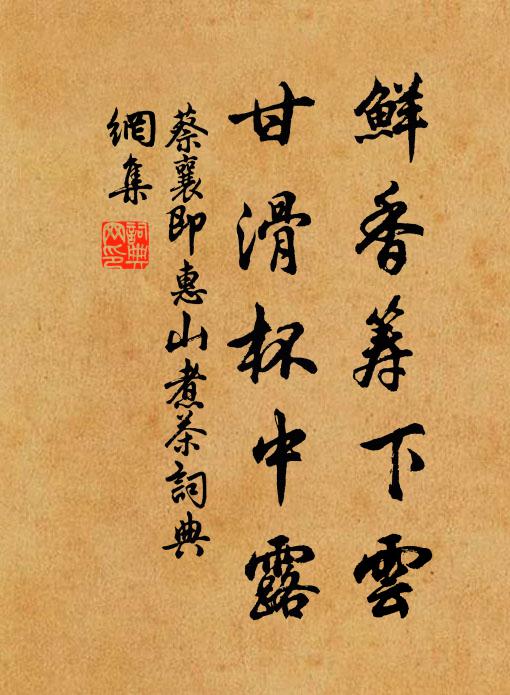 鮮香筹下雲
甘滑杯中露
蔡襄即惠山煮茶詞典
網集
詞典
网印